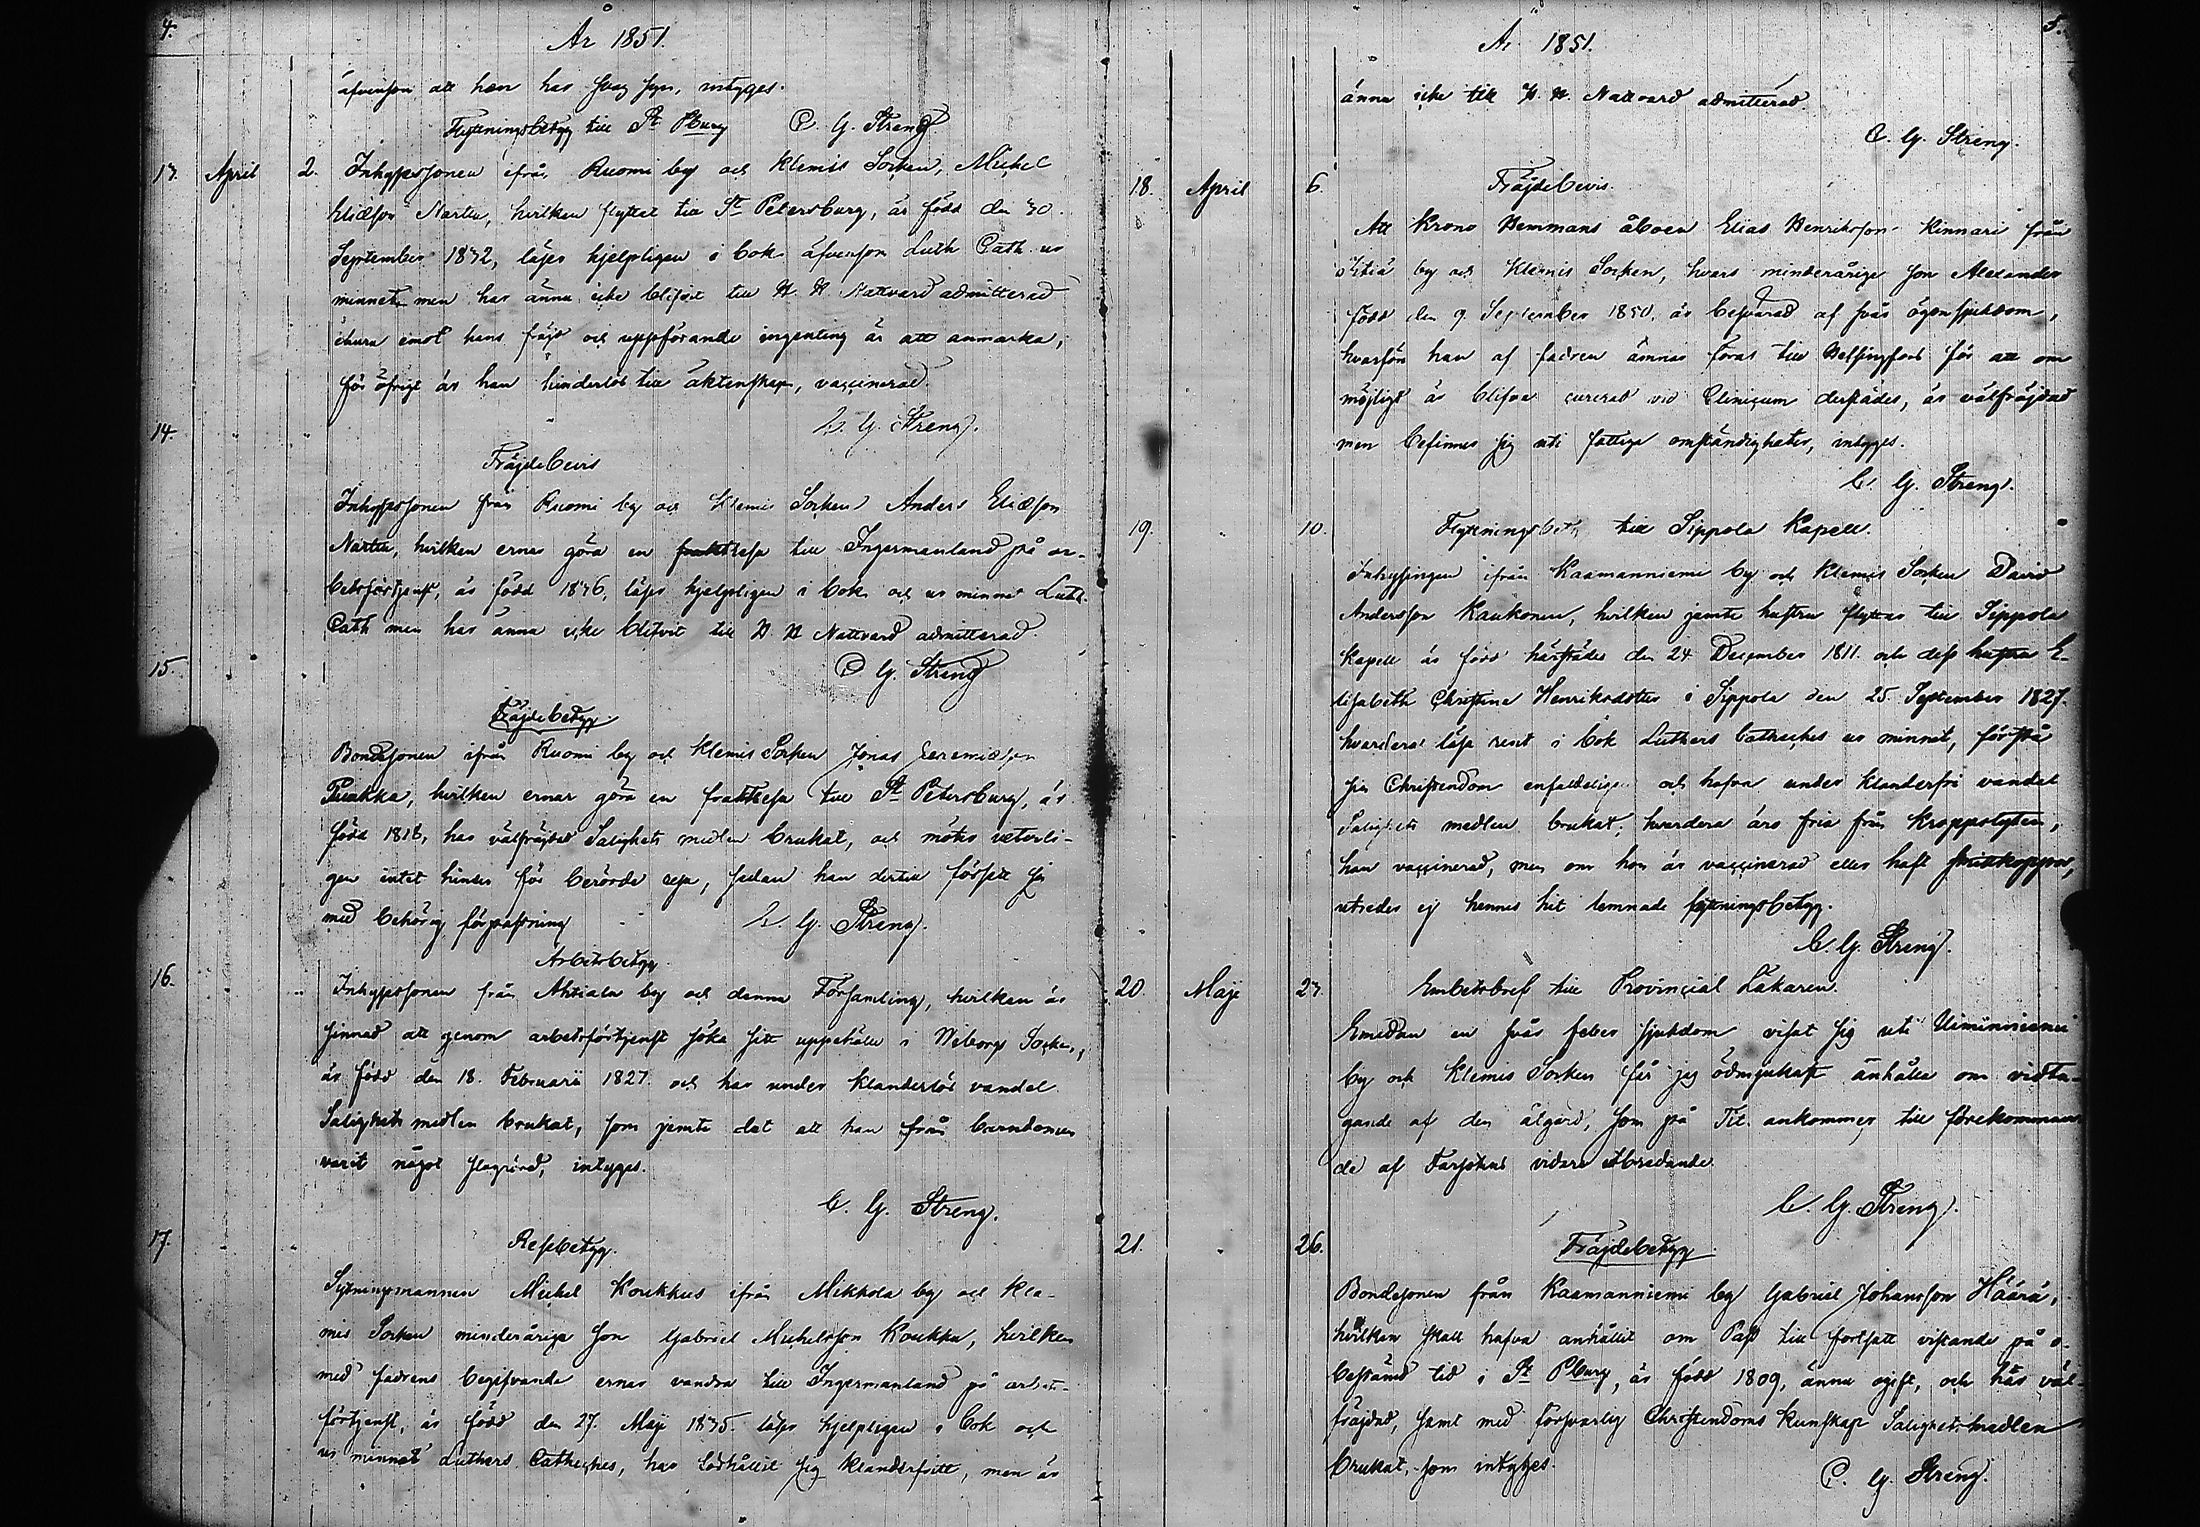 4.
År 1851.
äfvensom att han har svag syn, intygges.
Flyttningsbetyg till St Pburg C. G. Streng
13. April 2. Inhysessonen ifrån Ruomi by och Klemis Socken, Michel
Eliæson Nartu, hvilken flyttat till St Petersburg, är född den 30.
September 1832, läser hjelpligen i bok äfvensom Luth Cath. ur
minnet men har ännu icke blifvit till H. H. Nattvard admitterad
ehuru emot hans fräjd och uppförande ingenting är att anmärka,
för öfrigt är han hinderlös till äktenskap, vaccinerad.
C. G. Streng.
14.
Fräjdebevis
Inhysessonen från Ruomi by och Klemis Socken Anders Eliæson
Narttu, hvilken ernar göra en resa till Ingermanland på ar-
betsförtjenst, är född 1836, läser hjelpligen i bok och ur minnet Luth.
Cath men har ännu icke blifvit till H. H Nattvard admitterad.
C G. Streng
15.
Fräjdebetyg
Bondesonen ifrån Ruomi by och Klemis Socken Jonas Jeremiæson
Puukka, hvilken ernar göra en fraktresa till St Petersburg, är
född 1818, har välfräjdad Salighets medlen brukat, och möter veterli-
gen intet hinder för berörde resa, sedan han dertill försett sig
med behörig förpassning C. G. Streng.
Arbetsbetyg
16.
Inhysessonen från Ahtiala by och denna Församling, hvilken är
sinnad att genom arbetsförtjenst söka sitt uppehälle i Wiborgs Socken,
är född den 18. Februarii 1827. och har under klanderlös vandel
Salighets medlen brukat, som jemte det att han från barndomen
varit något flogrörd, intygges.
C. G. Streng.
17.
Resebetyg.
Sytningsmannen Michel Koukkus ifrån Mikkola by och Kle-
mis Socken minderårige son Gabriel Michelsson Koukku, hvilken
med fadrens begifvande ernar vandra till Ingermanland på arbets-
förtjenst, är född den 27. Maji 1835. läser hjelpligen i bok och
ur minnet Luthers Catheches, har stedshållit sig klanderfritt, men är
5.
År 1851.
ännu icke till H. H. Nattvard admitterad
C. G. Streng.
18. April 6.
Fräjdebevis.
Att Krono Hemmans åboen Elias Henriksson Kinnari från
by och Klemis Socken, hvars minderårige son Alexander
född den 9 September 1850. är besvärad af svår ögonsjukdom,
hvarföre han af fadren ämnas föras till Helsingfors för att om
möjligt är blifva curerad vid Clinicum derstädes, är välfräjdad
men befinner sig uti fattiga omständigheter, intygges.
C. G. Streng.
19. 10. Flyttningsbet. till Sippola Kapell.
Inhysingen ifrån Kaamanniemi by och Klemis Socken David
Andersson Kaukonen, hvilken jemte hustru flyttar till Sippola
Kapell är född härstädes den 24 December 1811. och dess hustru E-
lisabeth Christina Henriksdotter i Sippola den 25. September 1827.
hvardera läsa rent i bok Luthers Catheches ur minnet, förstå
sin Christendom enfaldeligen och hafva under klanderfri vandel
Salighets medlen brukat; hvardera äro fria från kroppslyten,
han vaccinerad, men om hon är vaccinerad eller haft smittkoppor,
utredes ej hennes hit lemnade flyttningsbetyg.
C. G. Streng.
20. Maji 23. Embetsbref till Provincial Läkaren.
Emedan en svår feber sjukdom visat sig uti Uiminniemi
by och Klemis Socken får jag ödmjukast anhålla om vidta-
gande af den åtgärd, som på Tit. ankommer till förekomman
de af Farsotens vidare utbredande.
C. G. Streng.
21. 26.
Fräjdebetyg
Bondesonen från Kaamanniemi by Gabriel Johansson Häärä,
hvilken skall hafva anhållit om Pass till fortsatt vistande på o-
bestämd tid i St Pburg, är född 1809, ännu ogift, och har väl-
fräjdad, samt med försvarlig Christendoms kunskap Salighetsmedlen
brukat, som intygges.
C. G. Streng.